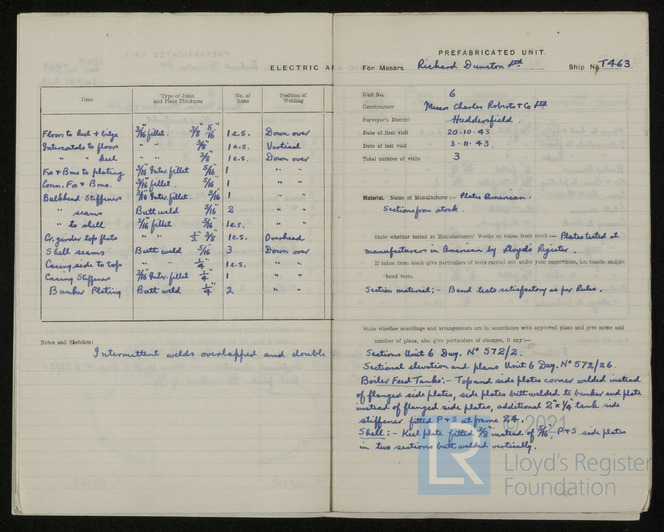 ELECTRIC A
Item
Type of Joint and Plate Thickness
No. of Items
Position of Welding
Floors to keel + bilge 3/16" fillet. 3/8" 5/16" 1 e.s. Down over
Intercostals to floors " " 3/8" 1 e.s. Vertical
" " keel " " 3/8" 1 e.s. Down over
Frs + Bms to plating 3/16" Inter. fillet 5/16" 1 " "
Conn. Frs + Bms. 3/16" fillet. 5/16" 1 " "
Bulkhead Stiffeners 3/16" Inter fillet. 5/16" 1 " "
" seams Butt weld 5/16" 2 " "
" to shell 3/16" fillet 5/16" 1 e.s. " "
Cr. girder top plate 1/2" 3/8" 1 e.s. Overhead
Shell seams Butt weld 5/16" 3 Down over
Casing side to top " " 1/4" 1 e.s. " "
Casing Stiffeners 3/16" Inter fillet 1/4" 1 " "
Bunker Plating Butt weld 1/4" 2 " "
Notes and Sketches:
Intermittent welds overlapped and double
PREFABRICATED UNIT
For Messrs. Richard Dunston Ltd Ship No. T463
Unit No. 6
Constructors Messrs Charles Roberts & Co Ltd
Surveyor's District Huddersfield.
Date of first visit 20.10.43.
Date of last visit 3.11.43.
Total number of visits 3
Material. Name of Manufacturer:— Plates American.
Sections from stock.
State whether tested at Manufacturers' Works or taken from stock:— Plates tested at
manufacturers in American by Lloyd's Register.
If taken from stock give particulars of tests carried out under your supervision, i.e. tensile and/or
bend tests.
Section material:- Bend tests satisfactory as per Rules.
State whether scantlings and arrangements are in accordance with approved plans and give name and
number of plans, also give particulars of changes, if any:—
Sections Unit 6 Dwg. No 572/2.
Sectional elevation and plans Unit 6 Dwg. No 572/26.
Boiler Feed Tanks:- Top and side plates corner welded instead
of flanged side plates, side plates butt welded to bunker end plate
instead of flanged side plates, additional 2" x 1/4 tank side
stiffener fitted P & S at frame 24.
Shell:- Keel plate fitted 3/8" instead of 5/16", P & S side plates
in two sections butt welded vertically.
© 2021
LR
Lloyd's Register
Foundation